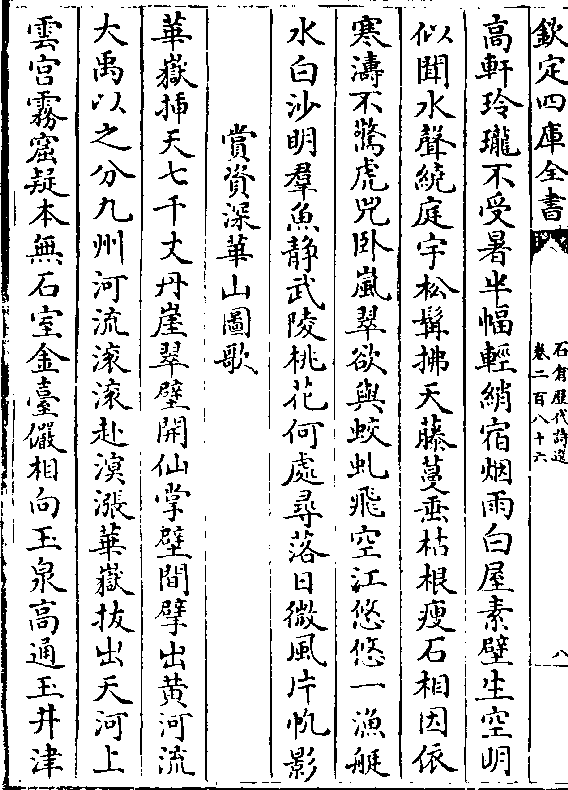 欽定四庫全書
石倉歷代詩選
卷二百八十六
八
高軒玲瓏不受暑半幅輕綃宿烟雨白屋素壁生空明
似聞水聲繞庭宇松髯拂天藤蔓垂枯根瘦石相因依
寒濤不驚虎兕卧嵐翠欲與蛟虬飛空江悠悠一漁艇
水白沙明羣魚静武陵桃花何處尋落日微風片帆影
賞資深華山圖歌
華嶽揷天七千丈丹崖翠壁開仙掌壁間擘出黄河流
大禹以之分九州河流滚滚赴溟漲華嶽拔出天河上
雲宫霧窟疑本無石室金臺儼相向玉泉高通玉井津